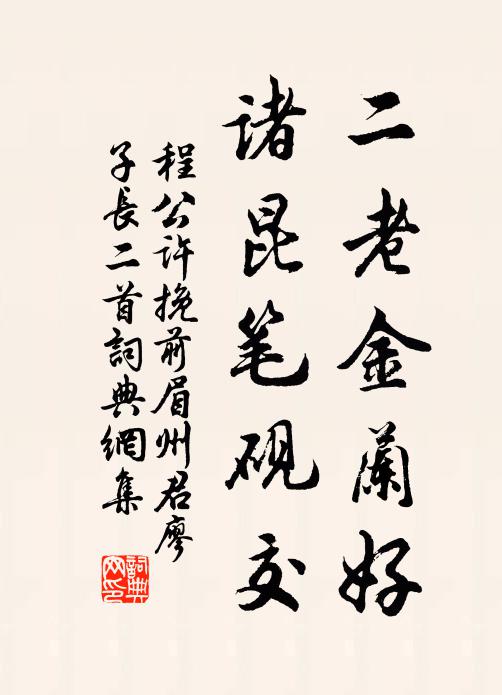 二老金蘭好
诸昆笔砚交
程公许挽前眉州君廖
子長二首詞典網集
詞典
网印